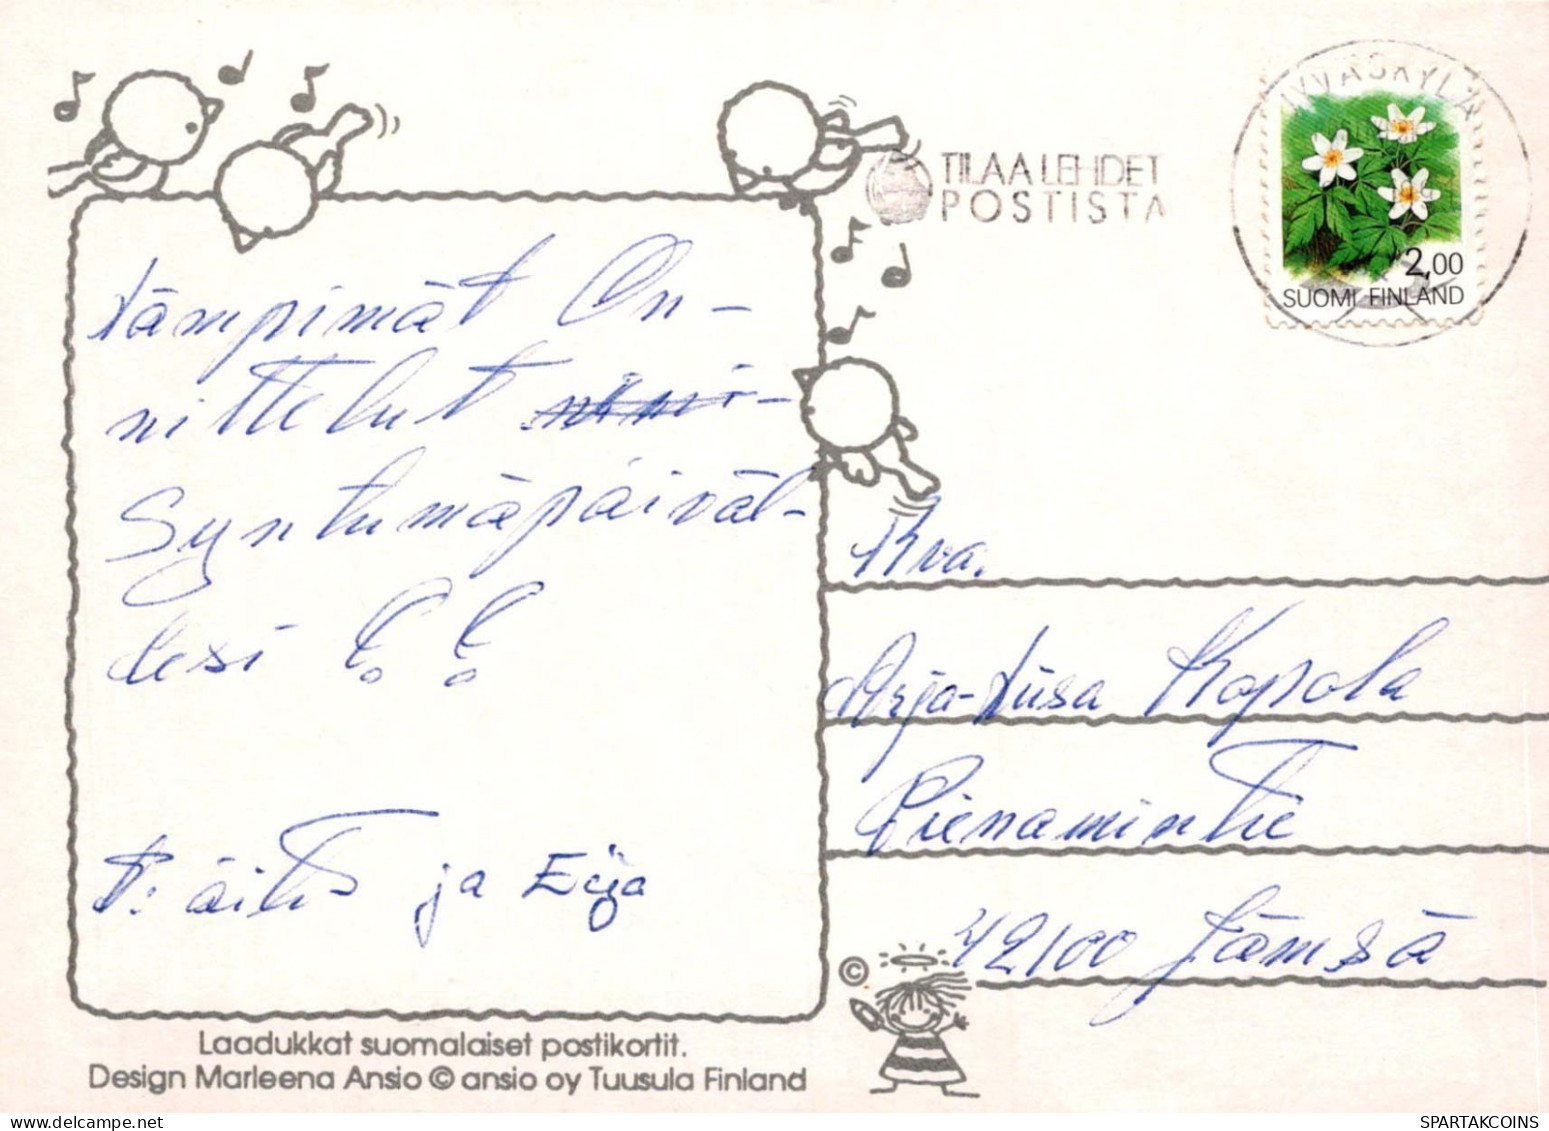 JYVÄSKYLÄ
TILAA LEHDET
POSTISTA
2,00
SUOMI FINLAND
Lämpimät On-
nittelut
Syntymäpäiväl-
lesi !!
T: äiti ja Eija
Rva.
Arja-Liisa Kopola
Pienamintie
42100 Jämsä
©
Laadukkat suomalaiset postikortit.
Design Marleena Ansio © ansio oy Tuusula Finland
www.delcampe.net
SPARTAKCOINS